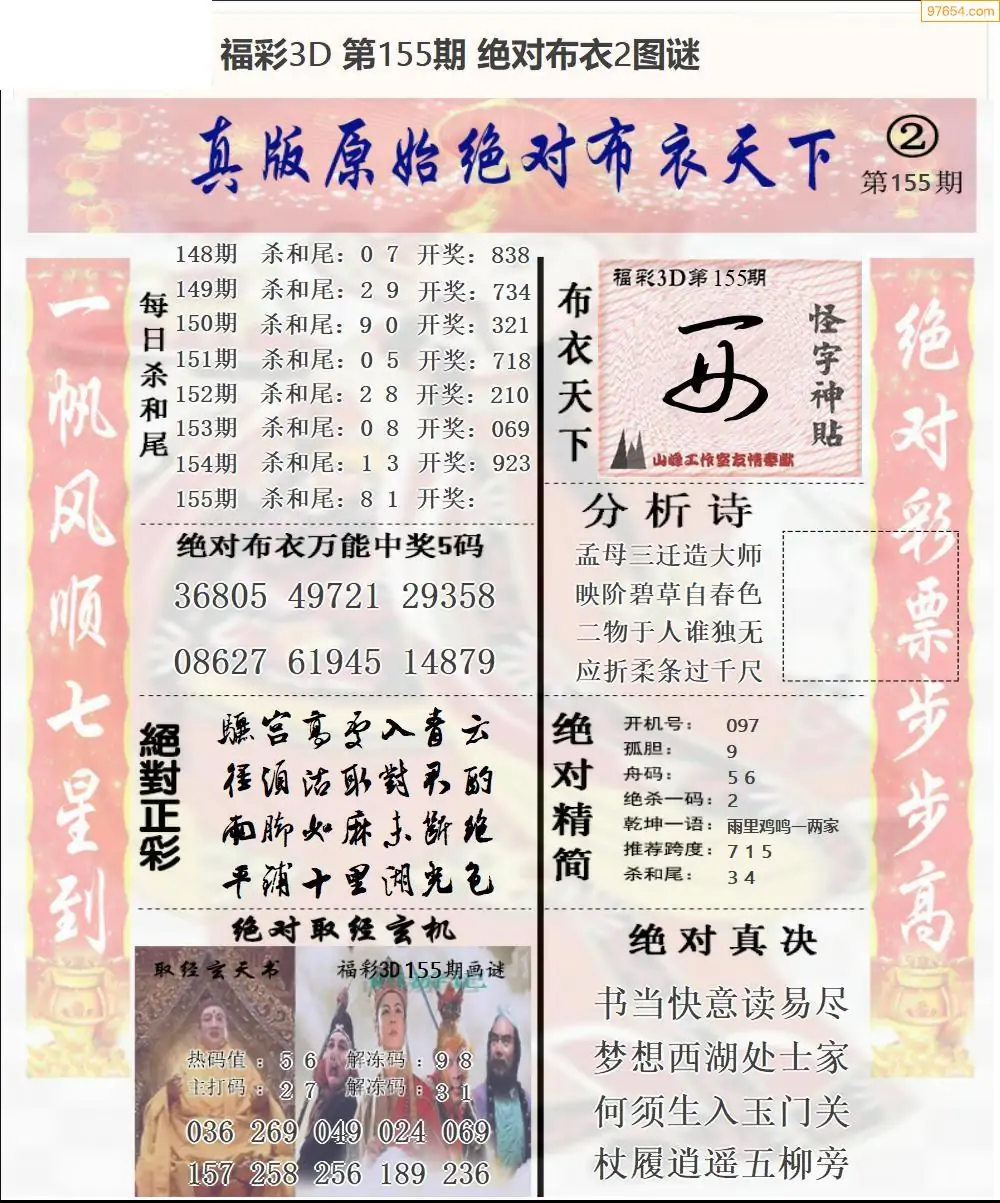 97654.com
福彩3D 第155期 绝对布衣2图谜
真版原始绝对布衣天下
②
第155期
一帆风顺七星到
每日杀和尾
148期 杀和尾：0 7 开奖：838
149期 杀和尾：2 9 开奖：734
150期 杀和尾：9 0 开奖：321
151期 杀和尾：0 5 开奖：718
152期 杀和尾：2 8 开奖：210
153期 杀和尾：0 8 开奖：069
154期 杀和尾：1 3 开奖：923
155期 杀和尾：8 1 开奖：
绝对布衣万能中奖5码
36805 49721 29358
08627 61945 14879
絕對正彩
驪宫高处入青云
径须沽取對君酌
雨脚如麻未断绝
平铺十里湖光色
绝对取经玄机
取经玄天书
福彩3D155期画谜
热码值：5 6 解冻码：9 8
主打码：2 7 解冻码：3 1
036 269 049 024 069
157 258 256 189 236
布衣天下
福彩3D第155期
怪字神貼
山峰工作室友情奉献
分析诗
孟母三迁造大师
映阶碧草自春色
二物于人谁独无
应折柔条过千尺
绝对精简
开机号： 097
孤胆： 9
舟码： 5 6
绝杀一码：2
乾坤一语：雨里鸡鸣一两家
推荐跨度：7 1 5
杀和尾： 3 4
绝对真决
书当快意读易尽
梦想西湖处士家
何须生入玉门关
杖履逍遥五柳旁
绝对彩票步步高